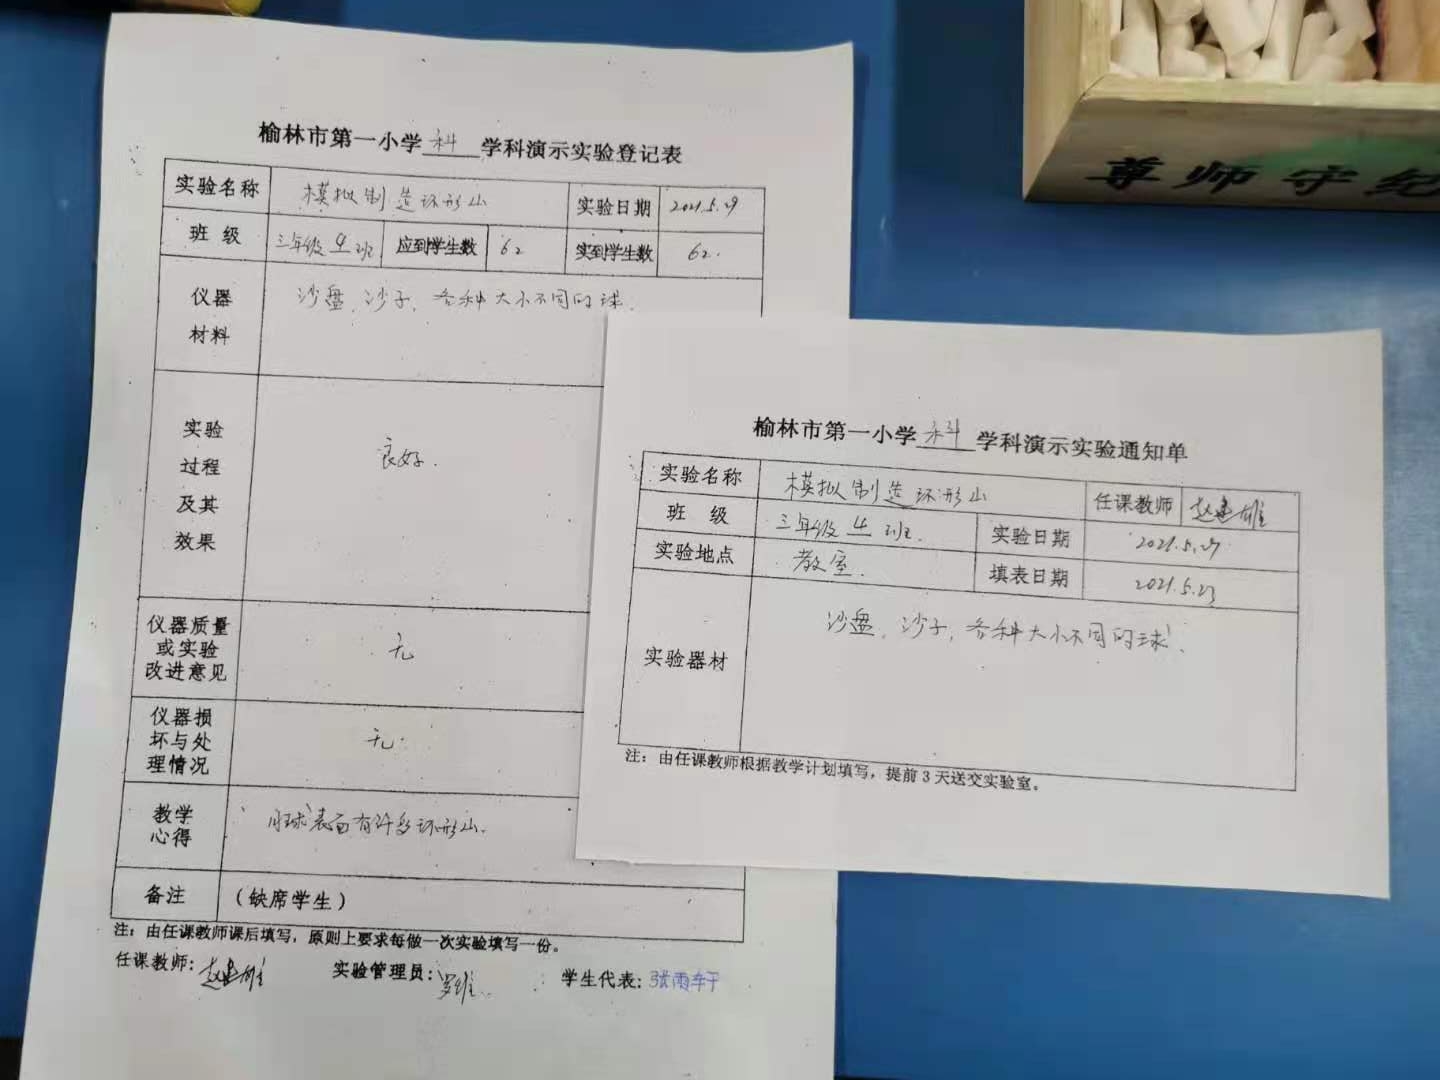 榆林市第一小学 科 学科演示实验登记表
实验名称 模拟制造环形山 实验日期 2021.5.29
班 级 三年级 4 班 应到学生数 62 实到学生数 62.
仪器
材料
沙盘、沙子、各种大小不同的球.
实验
过程
及其
效果
良好.
仪器质量
或实验
改进意见
无
仪器损
坏与处
理情况
无.
教学
心得
月球表面有许多环形山.
备注 (缺席学生)
注: 由任课教师课后填写, 原则上要求每做一次实验填写一份。
任课教师: 赵建雄 实验管理员: 罗维 学生代表: 张雨轩
榆林市第一小学 科 学科演示实验通知单
实验名称 模拟制造环形山 任课教师 赵建雄
班 级 三年级 4 班. 实验日期 2021.5.27
实验地点 教室. 填表日期 2021.5.23
实验器材 沙盘、沙子、各种大小不同的球.
注: 由任课教师根据教学计划填写, 提前3天送交实验室。
尊师守纪